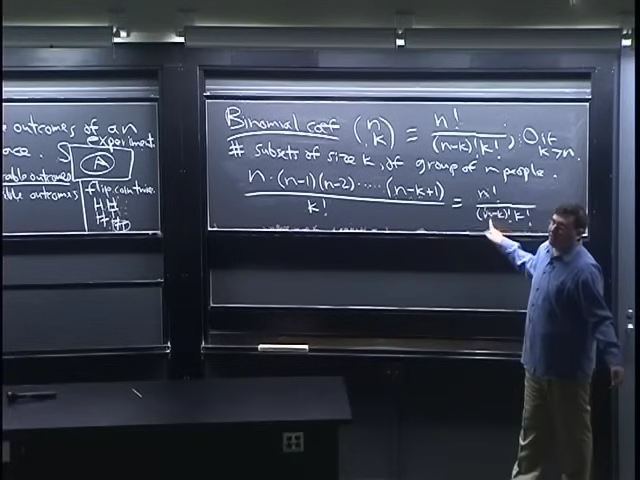 e outcomes of an
experiment.
ace. S
A
rable outcomes
ible outcomes
flip coin twice
HH
HT
Binomial coef (n k) = n! / (n-k)! k! , 0 if k>n.
# subsets of size k, of group of n people.
n·(n-1)(n-2)·····(n-k+1) / k! = n! / (n-k)! k!